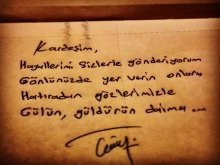 Kardeşim,
Hayallerimi Sizlerle gönderiyorum
Gönlünüzde yer verin onlara
Hatıradan gözlerimizle
Gülün, güldürün daima ...